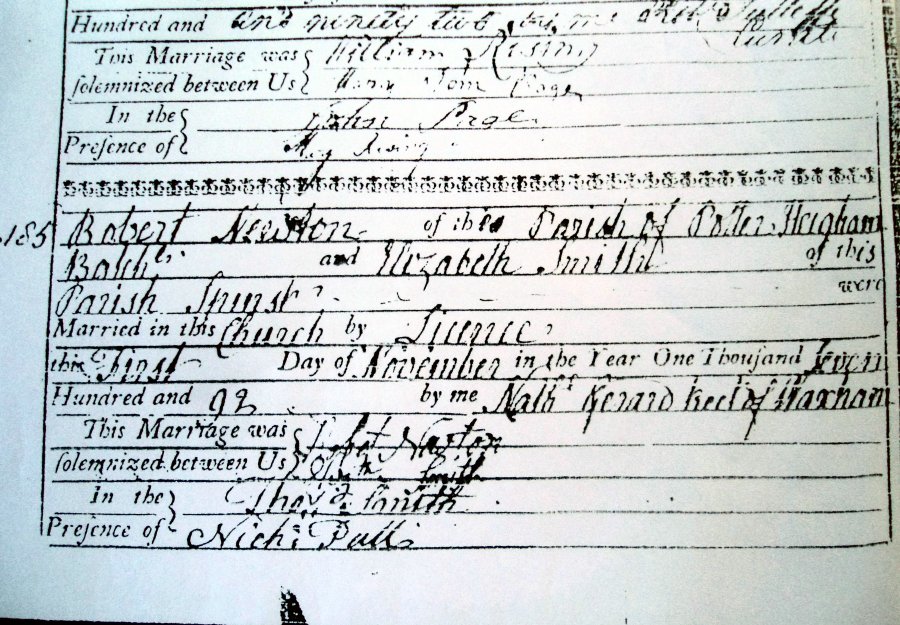 Hundred and and ninety two by me
This Marriage was William Rising
solemnized between Us Page
In the John Page
Presence of Rising
185 Robert Newton of this Parish of Potter Heigham
Batch.r and Elizabeth Smith of this
Parish Spinst.r were
Married in this Church by Licence
this First Day of November in the Year One Thousand Seven
Hundred and 92 by me Nath.l Kerrard Rect.r of Waxham
This Marriage was Robert Newton
solemnized between Us Eliz.th Smith
In the Tho.s Smith
Presence of Nich.s